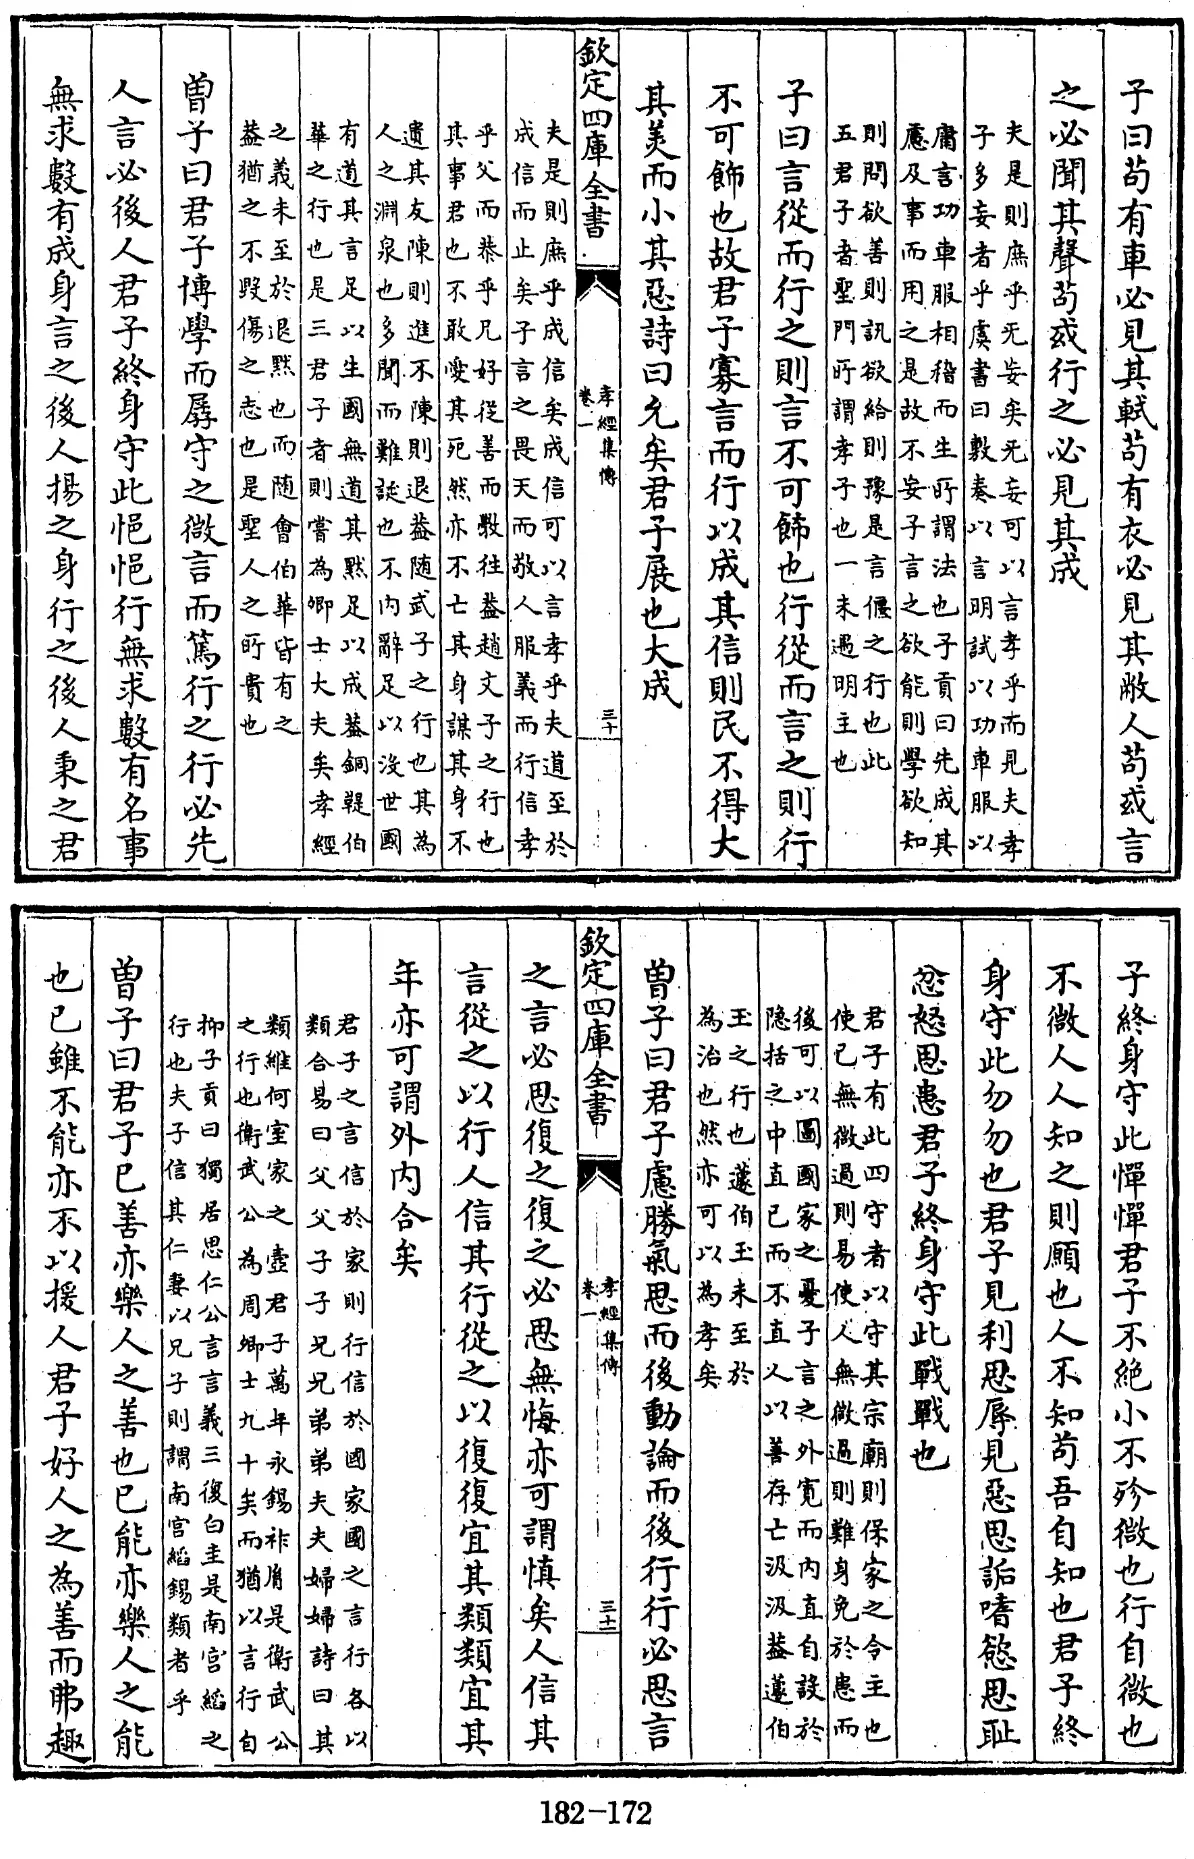 子曰苟有車必見其軾苟有衣必見其敝人苟或言
之必聞其聲苟或行之必見其成
夫是則庶乎无妄矣无妄可以言孝乎而見夫孝
子多妄者乎虞書曰敷奏以言明試以功車服以
庸言功車服相稽而生所謂法也子貢曰先成其
慮及事而用之是故不妄子言之欲能則學欲知
則問欲善則訊欲給則豫是言偃之行也此
五君子者聖門所謂孝子也一未遇明主也
子曰言從而行之則言不可飾也行從而言之則行
不可飾也故君子寡言而行以成其信則民不得大
其美而小其惡詩曰允矣君子展也大成
欽定四庫全書
孝經集傳
卷一
三十
夫是則庶乎成信矣成信可以言孝乎夫道至於
成信而止矣子言之畏天而敬人服義而行信孝
乎父而恭乎兄好從善而斆往蓋趙文子之行也
其事君也不敢愛其死然亦不亡其身謀其身不
遺其友陳則進不陳則退蓋随武子之行也其為
人之淵泉也多聞而難誕也不内辭足以沒世國
有道其言足以生國無道其默足以成蓋銅鞮伯
華之行也是三君子者則嘗為卿士大夫矣孝經
之義未至於退默也而随會伯華皆有之
蓋猶之不毀傷之志也是聖人之所貴也
曾子曰君子博學而孱守之微言而篤行之行必先
人言必後人君子終身守此悒悒行無求數有名事
無求數有成身言之後人揚之身行之後人秉之君
子終身守此憚憚君子不絶小不殄微也行自微也
不微人人知之則願也人不知苟吾自知也君子終
身守此勿勿也君子見利思辱見惡思詬嗜慾思耻
忿怒思患君子終身守此戰戰也
君子有此四守者以守其宗廟則保家之令主也
使已無微過則易使人無微過則難身免於患而
後可以圖國家之憂子言之外寛而内直自設於
隐括之中直已而不直人以善存亡汲汲蓋蘧伯
玉之行也蘧伯玉未至於
為治也然亦可以為孝矣
曾子曰君子慮勝氣思而後動論而後行行必思言
欽定四庫全書
孝經集傳
卷一
三十一
之言必思復之復之必思無悔亦可謂慎矣人信其
言從之以行人信其行從之以復復宜其類類宜其
年亦可謂外内合矣
君子之言信於家則行信於國家國之言行各以
類合易曰父父子子兄兄弟弟夫夫婦婦詩曰其
類維何室家之壼君子萬年永錫祚𦙍是衛武公
之行也衛武公為周卿士九十矣而猶以言行自
抑子貢曰獨居思仁公言言義三復白圭是南宫縚之
行也夫子信其仁妻以兄子則謂南宫縚錫類者乎
曾子曰君子已善亦樂人之善也已能亦樂人之能
也已雖不能亦不以援人君子好人之為善而弗趣
182-172